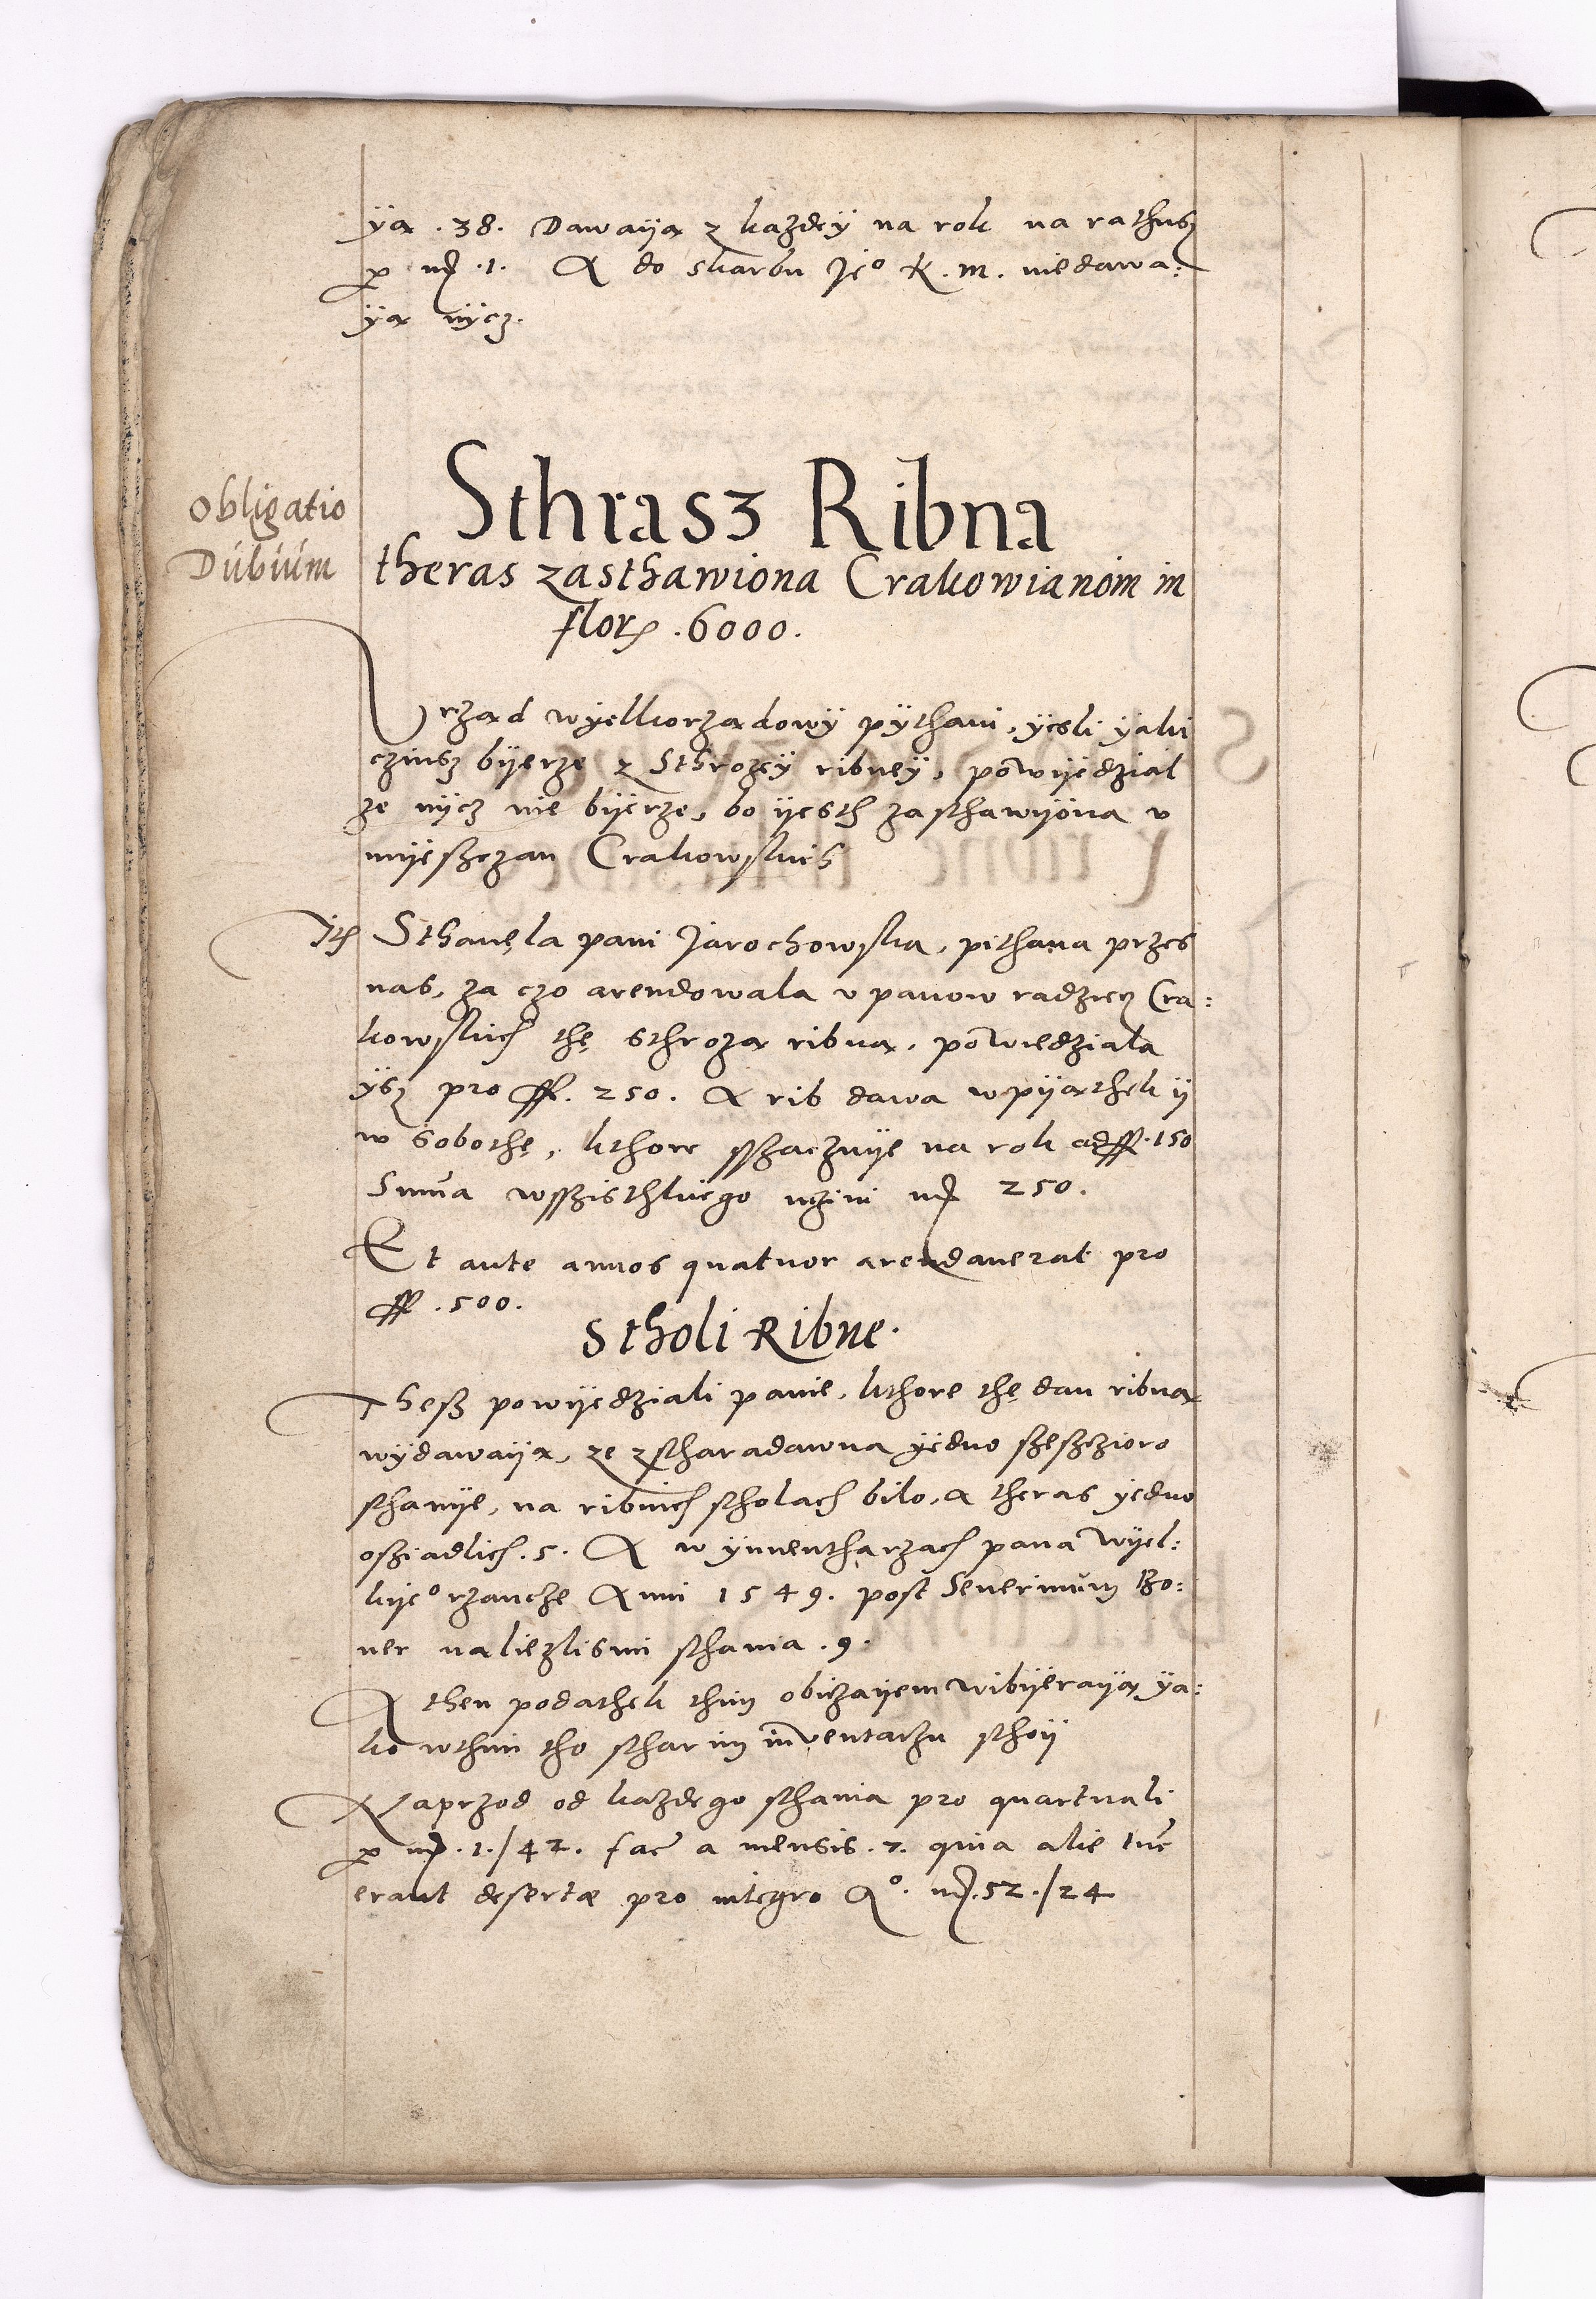 ÿą .38. Dawaiją z kazdeÿ na rok na rathusz
ꝑ mr̃ .1. A do skarbu Je° K. M. niedawa:
ÿą nÿcz.
Obligatio
Dubium
Sthrasz Ribna
theras zasthawiona Crakowianom in
flor .6000.
Urząd wyelkorządowÿ pÿthani, ÿesli ÿaki
czinsz bijerze z Sthrozeÿ ribneÿ, powijedzial
ze nÿcz nie bijerze, bo ijesth zasthawijona v
mijesczan Crakowskich
Ith Sthanęla pani Jarochowska, pithana przes
nas, za czo arendowala v panow radziecz Cra:
kowskich thę sthrozą ribną, powiedziala
ÿsz pro ff. 250. A rib dawa w pijąthek ij
w sobothę, kthore sszaczuije na rok ad ff. 150
Suma wsszisthkiego uczini mr̃ 250.
Et ante annos quatuor arendauerat pro
ff .500.
Stholi Ribne.
Thesz powijedziali panie, kthore thę dan ribną
wÿdawaiją, ze zstharadawna ÿedno szesczioro
sthanije, na ribnich stholach bilo, a theras ÿedno
osziadlich .5. A w ÿnwentharzach pana Wijel:
kije° rzancze Anni 1549. post Seuerinum Bo:
ner naliezlismi sthania .9.
A then podathek thim obiczaijem wibijeraiją ÿa:
ko wthim tho stharim inventarzu sthoij
Naprzod od kazdego sthania pro quartuali
ꝑ mr̃ .1./42. fac a mensis .7. quia alie tuc
erant desertæ pro integro A°. mr̃ .52./24